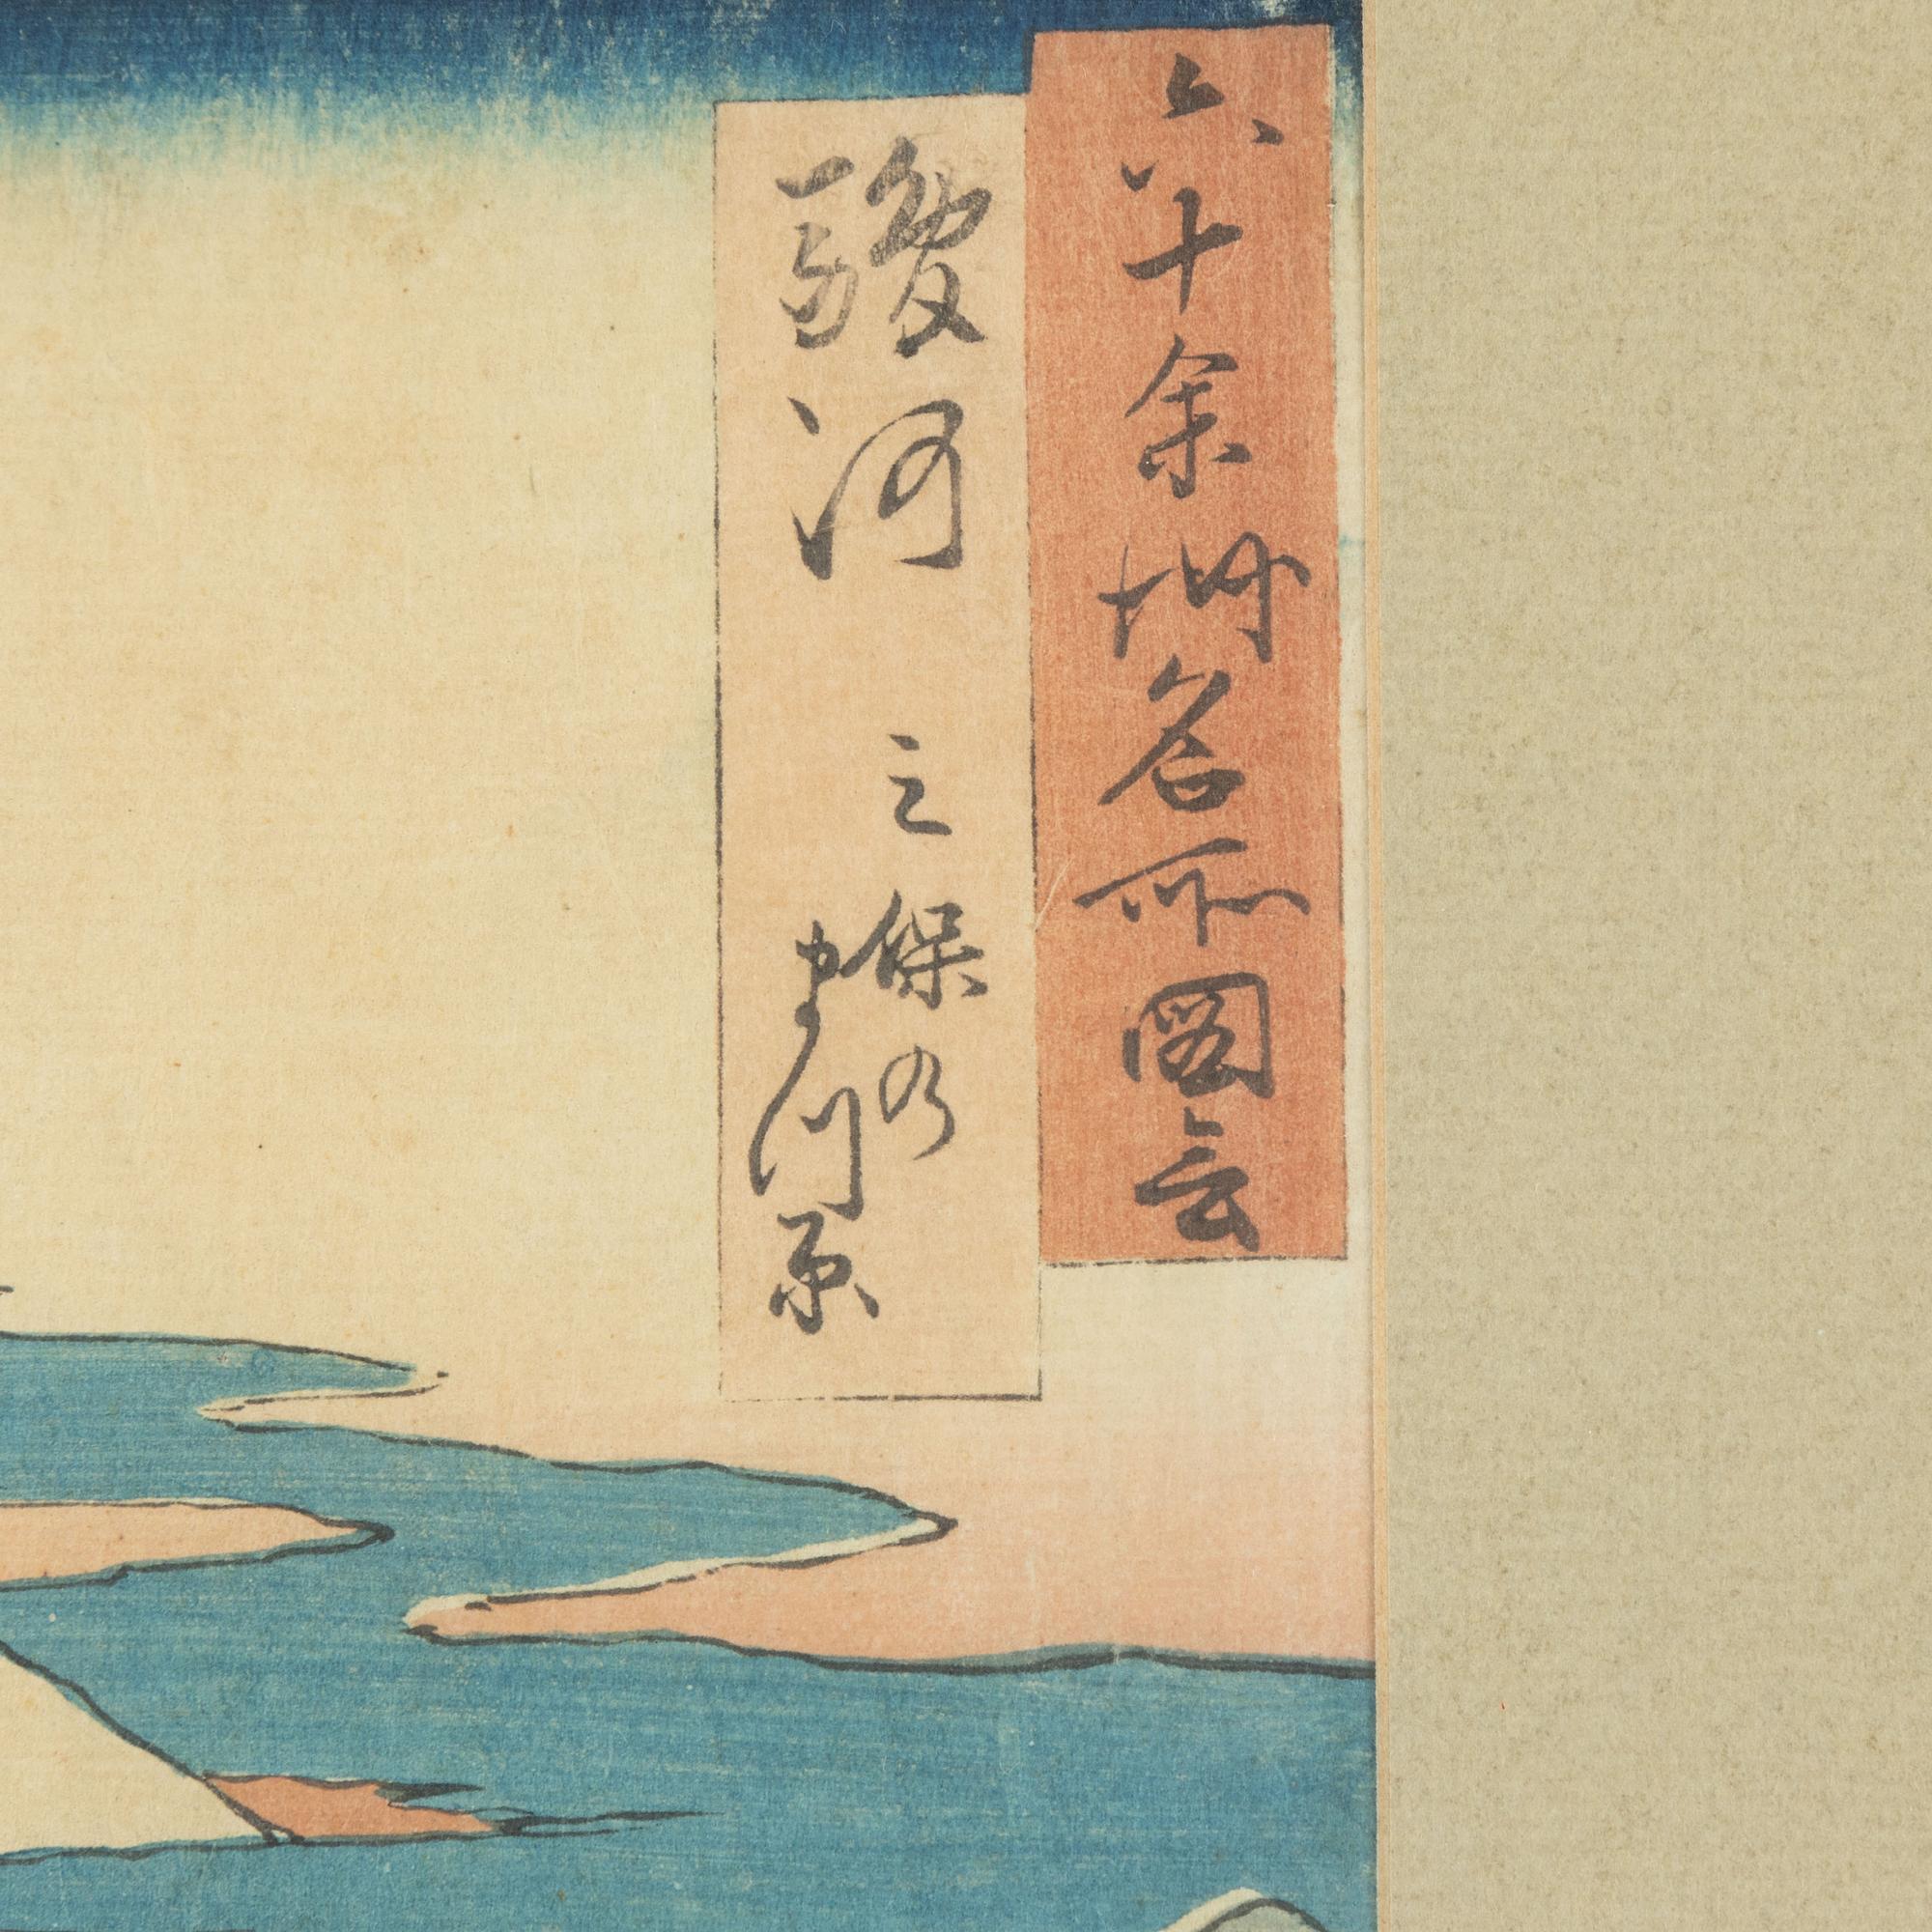 六十余州名所図会
駿河
三保の
まつ原